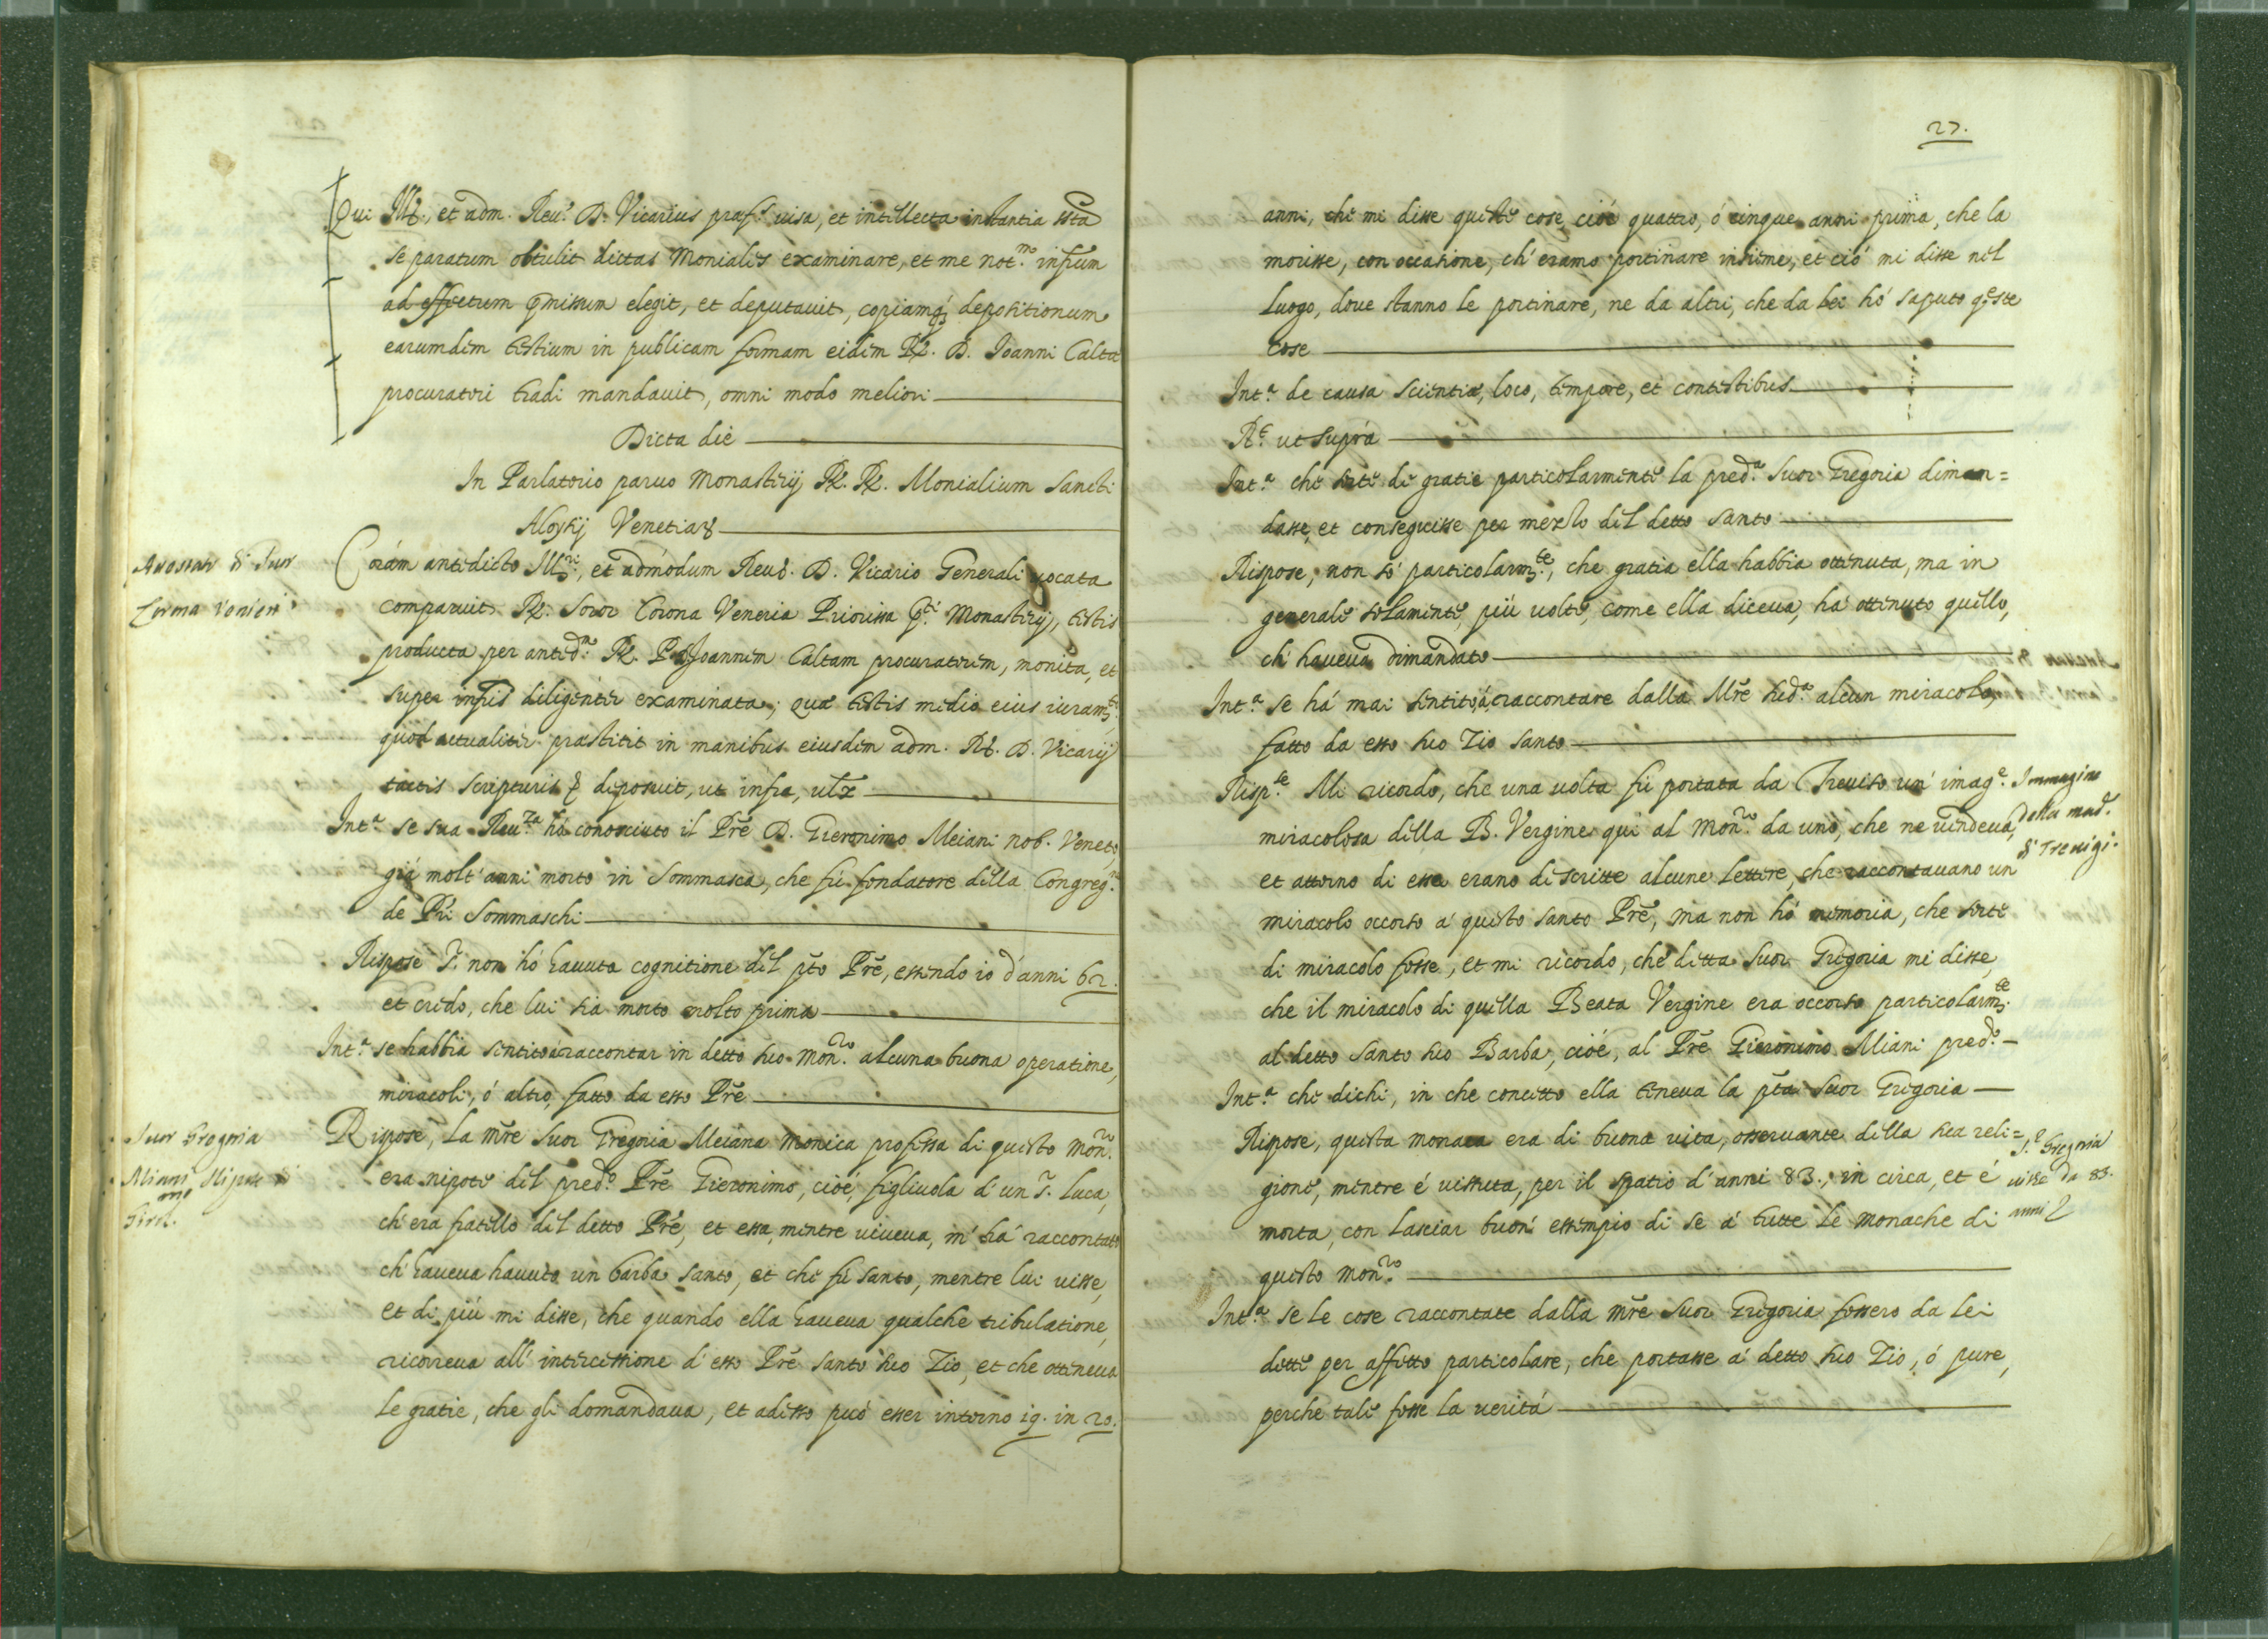 Qui Ill. et adm. Reu.s D. Vicarius præf.s uisa, et intellecta instantia
se paratum obtulit dictas Moniales examinare, et me not.m infrum
ad effectum pmissum elegit, et deputauit, copiamq; depositionum
earumdem testium in publicam formam eidem R. D. Joanni Calta
procuratori tradi mandauit, omni modo meliori
Dicta die
In Parlatorio paruo Monasterij R. R. Monialium Sancti
Aloysij Venetiar
di Suor
Corona Venieri
Coram antedicto Ill.ri, et admodum Reu.do D. Vicario Generali uocata
comparuit R. Soror Corona Veneria Priorissa p.ti Monasterij, testis
producta per anted.m R. P. Joannem Caltam procuratorem, monita, et
super infris diligenter examinata; quæ testis medio eius iuram.to
quod actualiter præstitit in manibus eiusdem adm. R.di D. Vicarij
tactis scripturis & deposuit, ut infra, ult
Int.a se sua Reu.za hà conosciuto il Prẽ D. Gieronimo Meiani nob. Veneto,
già molt'anni morto in Sommasca, che fù fondatore della Congreg.ne
de Pri Sommaschi
Rispose S. non ho hauuta cognitione del pto Prẽ, essendo io d'anni 62.
et credo, che lui sia morto molto prima
Int.a se habbia sentito à raccontar in detto suo mon.rio alcuna buona operatione,
miracoli, ò altro, fatto da esso Prẽ
Suor Gregoria
Miani Nipote di
Girol.mo
Rispose, La mrẽ Suor Gregoria Meiana monica professa di questo mon.rio
era nipote del pred.o Prẽ Gieronimo, cioé, figliuola d'un S. Luca,
ch'era fratello del detto Prẽ, et essa, mentre viueua, m'hà raccontato
ch'haueua hauuto un barba santo, et che fù santo, mentre lui uisse,
et di più mi disse, che quando ella haueua qualche tribulatione,
ricorreua all'intercessione d'esso Prẽ santo suo Zio, et che otteneua
le gratie, che gli domandaua, et adesso può esser intorno 19. in 20.
27.
anni, che mi disse queste cose, cioé quattro, ó cinque anni prima, che la
morisse, con occasione, ch'eramo portinare insieme, et ciò mi disse nel
luogo, doue stanno le portinare, ne da altri, che da lei hò saputo q.ste
cose
Int.a de causa scientiæ, loco, tempore, et contestibus
R.t ut supra
Int.a che sorte di gratie particolarmente la pred.a Suor Gregoria diman=
dasse, et conseguisse per mezzo del detto santo
Rispose, non sò particolarm.te, che gratia ella habbia ottenuta, ma in
generale solamente, più uolte, come ella diceua, hà ottenuto quello,
ch'haueua dimandato
Int.a se hà mai sentito à raccontare dalla Mrẽ sud.a alcun miracolo,
fatto da esso suo Zio santo
Risp.te Mi ricordo, che una uolta fù portata da Treuiso un'imag.e
Immagine
della mad.
di Trevigi.
miracolosa della B. Vergine quì al mon.rio da uno, che ne uendeua,
et attorno di essa erano descritte alcune lettere, che raccontauano un
miracolo occorso à questo santo Prẽ, ma non hò memoria, che sorte
di miracolo fosse, et mi ricordo, che detta Suor Gregoria mi disse,
che il miracolo di quella Beata Vergine era occorso particolarm.te
al detto santo suo Barba, cioé, al Prẽ Gieronimo Miani pred.o
Int.a che dichi, in che concetto ella teneua la pta Suor Gregoria
Rispose, questa monaca era di buona vita, osseruante della sua reli=
gione, mentre é uissuta, per il spatio d'anni 83. in circa, et é
S.r Gregoria
uisse da 83.
anni
morta, con lasciar buon'essempio di se à tutte le monache di
questo mon.rio
Int.a se le cose raccontate dalla mrẽ Suor Gregoria fossero da lei
dette per affetto particolare, che portasse à detto suo Zio, ó pure,
perche tale fosse la uerità